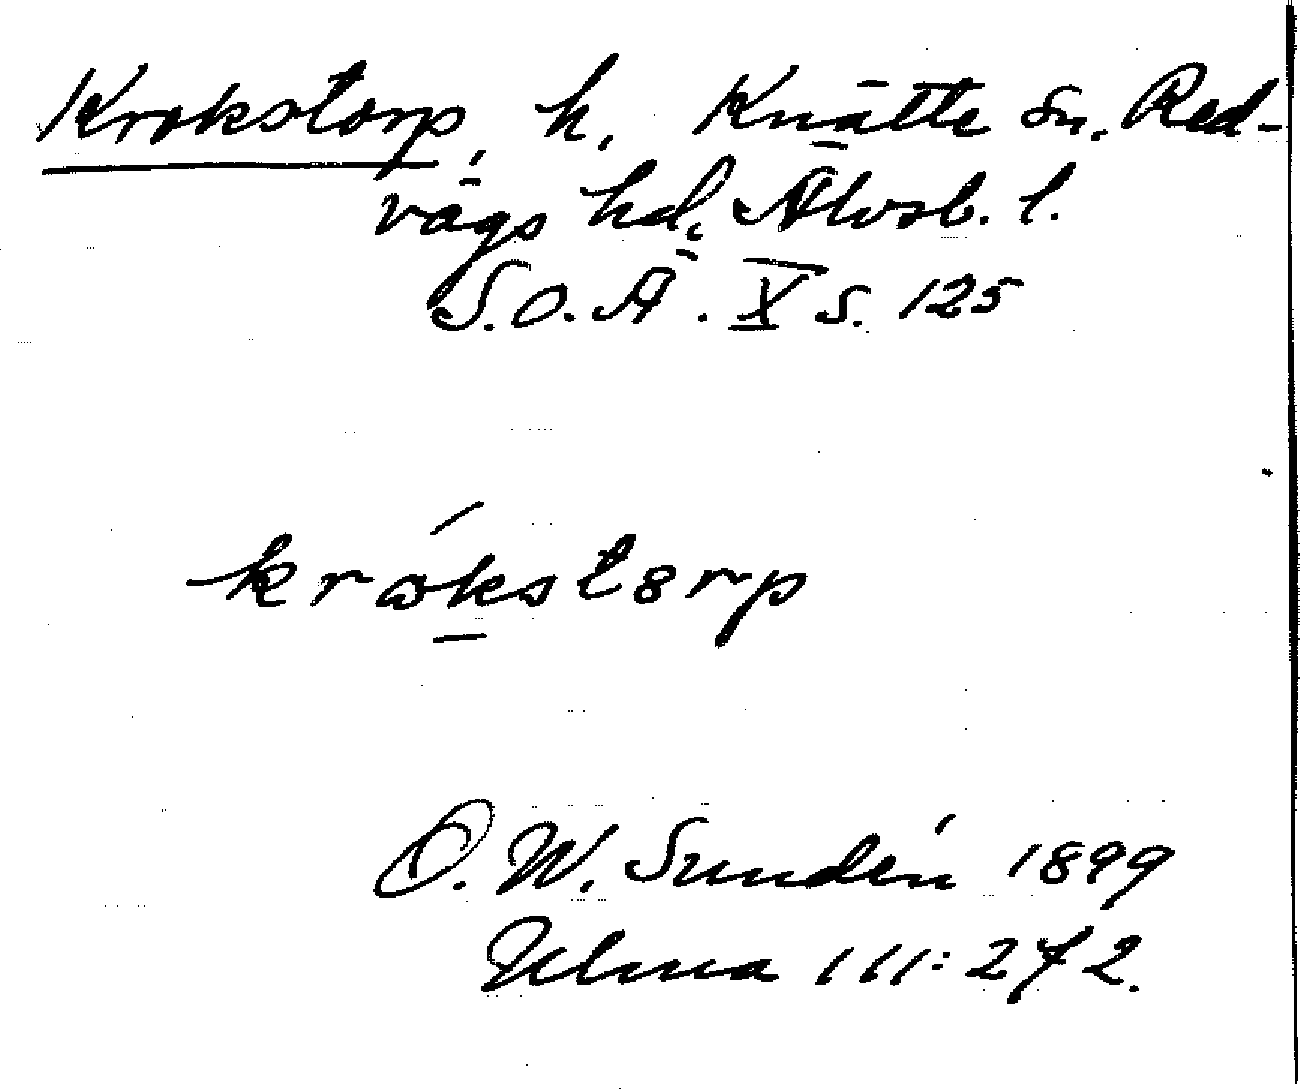 Krokstorp, h. Knätte sn. Red-
vägs hd, Älvsb. l.
S.O.Ä. X s. 125
krɷkst8rp
O. W. Sundén 1899
Ulma 111:272.